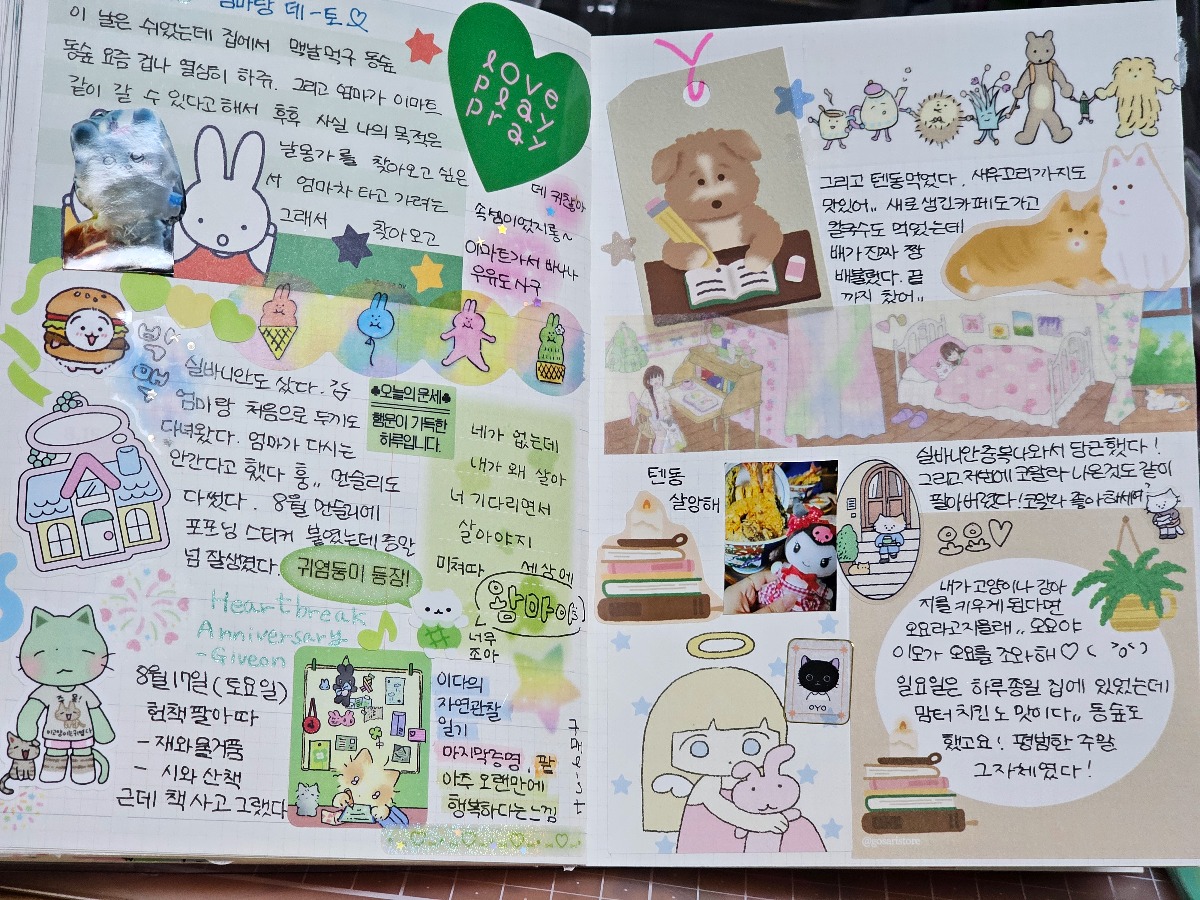 엄마랑 데-토♡
이 날은 쉬었는데 집에서 맨날먹구 동숲
동숲 요즘 겁나 열심히 하쥬. 그리고 엄마가 이마트
같이 갈 수 있다고해서 후후 사실 나의 목적은
날옹가를 찾아오고 싶은
서 엄마차 타고 가려는
그래서 찾아오고
love
play
pray
데 귀찮아
속셈이었지롱~
이마트가서 바나나
우유도 사구
실바니안도 샀다. 글
엄마랑 처음으로 두끼도
다녀왔다. 엄마가 다시는
안간다고 했다 흥,, 먼슬리도
다썼다. 8월 먼슬리에
포포닝 스티커 붙였는데 증말
넘 잘생겼다.
♣오늘의운세♣
행운이 가득한
하루입니다.
네가 없는데
내가 왜 살아
너 기다리면서
살아야지
미쳐따 세상에
왕마이
너무
조아
귀염둥이 등장!
Heartbreak
Anniversary
-Giveon
8월 17일 (토요일)
헌책팔아따
- 재와물거품
- 시와 산책
근데 책 사고 그랬다
이다의
자연관찰
일기
마지막증명, 팔
아주 오랜만에
행복하다는 느낌
그리고 텐동먹었다. 새우꼬리까지도
맛있어.. 새로생긴카페도가고
칼국수도 먹었는데
배가 진짜 짱
배불렀다. 끝
까지 찼어..
텐동
살앙해
실바니안중복나와서 당근했다!
그리고 저번에 코알라 나온것도 같이
팔아버렸다!코알라 좋아하세여?
OYO
내가 고양이나 강아
지를 키우게 된다면
오요라고지을래,, 오요야
이모가 오요를 조와해♡
일요일은 하루종일 집에 있었는데
맘터치킨 노 맛이다,, 동숲도
했고요! 평범한 주말
그자체였다!
@gosaristore